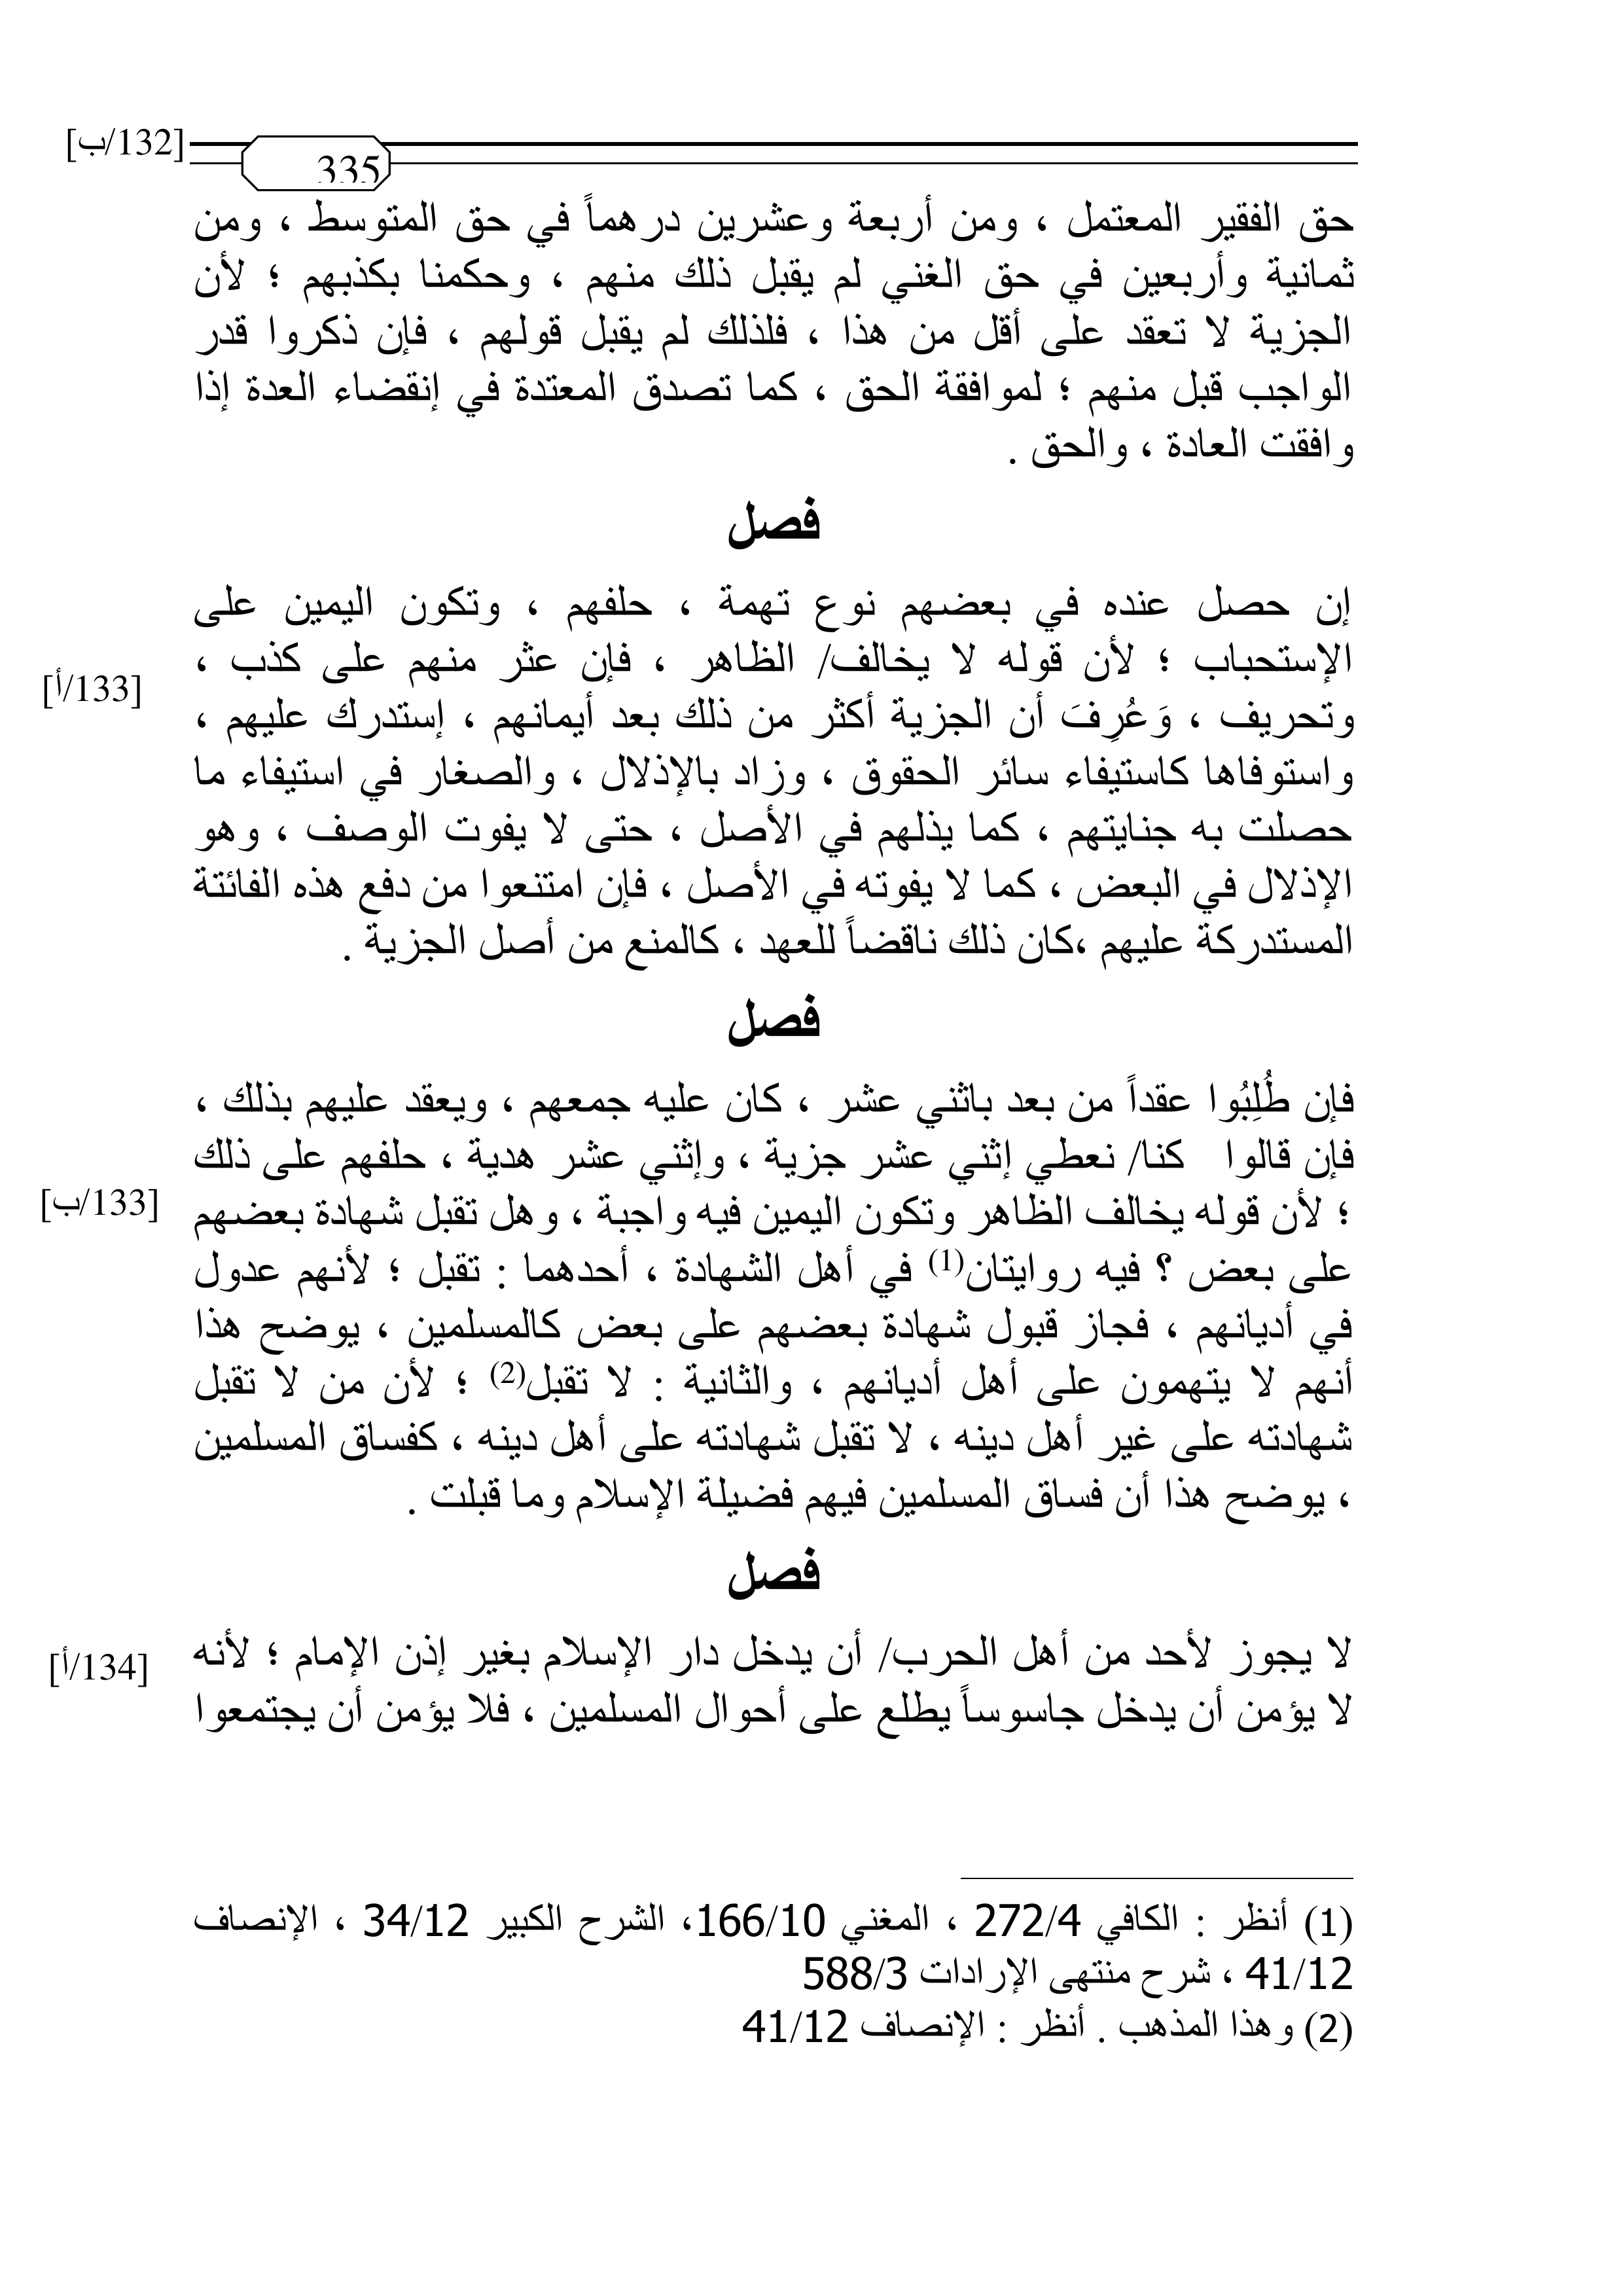 [132/ب]
335
حق الفقير المعتمل ، ومن أربعة وعشرين درهماً في حق المتوسط ، ومن
ثمانية وأربعين في حق الغني لم يقبل ذلك منهم ، وحكمنا بكذبهم ؛ لأن
الجزية لا تعقد على أقل من هذا ، فلذلك لم يقبل قولهم ، فإن ذكروا قدر
الواجب قبل منهم ؛ لموافقة الحق ، كما تصدق المعتدة في إنقضاء العدة إذا
وافقت العادة ، والحق .
فصل
إن حصل عنده في بعضهم نوع تهمة ، حلفهم ، وتكون اليمين على
الإستحباب ؛ لأن قوله لا يخالف/ الظاهر ، فإن عثر منهم على كذب ،
[133/أ]
وتحريف ، وَعُرِفَ أن الجزية أكثر من ذلك بعد أيمانهم ، إستدرك عليهم ،
واستوفاها كاستيفاء سائر الحقوق ، وزاد بالإذلال ، والصغار في استيفاء ما
حصلت به جنايتهم ، كما يذلهم في الأصل ، حتى لا يفوت الوصف ، وهو
الإذلال في البعض ، كما لا يفوته في الأصل ، فإن امتنعوا من دفع هذه الفائتة
المستدركة عليهم ،كان ذلك ناقضاً للعهد ، كالمنع من أصل الجزية .
فصل
فإن طُلِبُوا عقداً من بعد باثني عشر ، كان عليه جمعهم ، ويعقد عليهم بذلك ،
فإن قالوا كنا/ نعطي إثني عشر جزية ، وإثني عشر هدية ، حلفهم على ذلك
[133/ب]
؛ لأن قوله يخالف الظاهر وتكون اليمين فيه واجبة ، وهل تقبل شهادة بعضهم
على بعض ؟ فيه روايتان(1) في أهل الشهادة ، أحدهما : تقبل ؛ لأنهم عدول
في أديانهم ، فجاز قبول شهادة بعضهم على بعض كالمسلمين ، يوضح هذا
أنهم لا يتهمون على أهل أديانهم ، والثانية : لا تقبل(2) ؛ لأن من لا تقبل
شهادته على غير أهل دينه ، لا تقبل شهادته على أهل دينه ، كفساق المسلمين
، يوضح هذا أن فساق المسلمين فيهم فضيلة الإسلام وما قبلت .
فصل
لا يجوز لأحد من أهل الحرب/ أن يدخل دار الإسلام بغير إذن الإمام ؛ لأنه
[134/أ]
لا يؤمن أن يدخل جاسوساً يطلع على أحوال المسلمين ، فلا يؤمن أن يجتمعوا
(1) أنظر : الكافي 272/4 ، المغني 166/10، الشرح الكبير 34/12 ، الإنصاف
41/12 ، شرح منتهى الإرادات 588/3
(2) وهذا المذهب . أنظر : الإنصاف 41/12